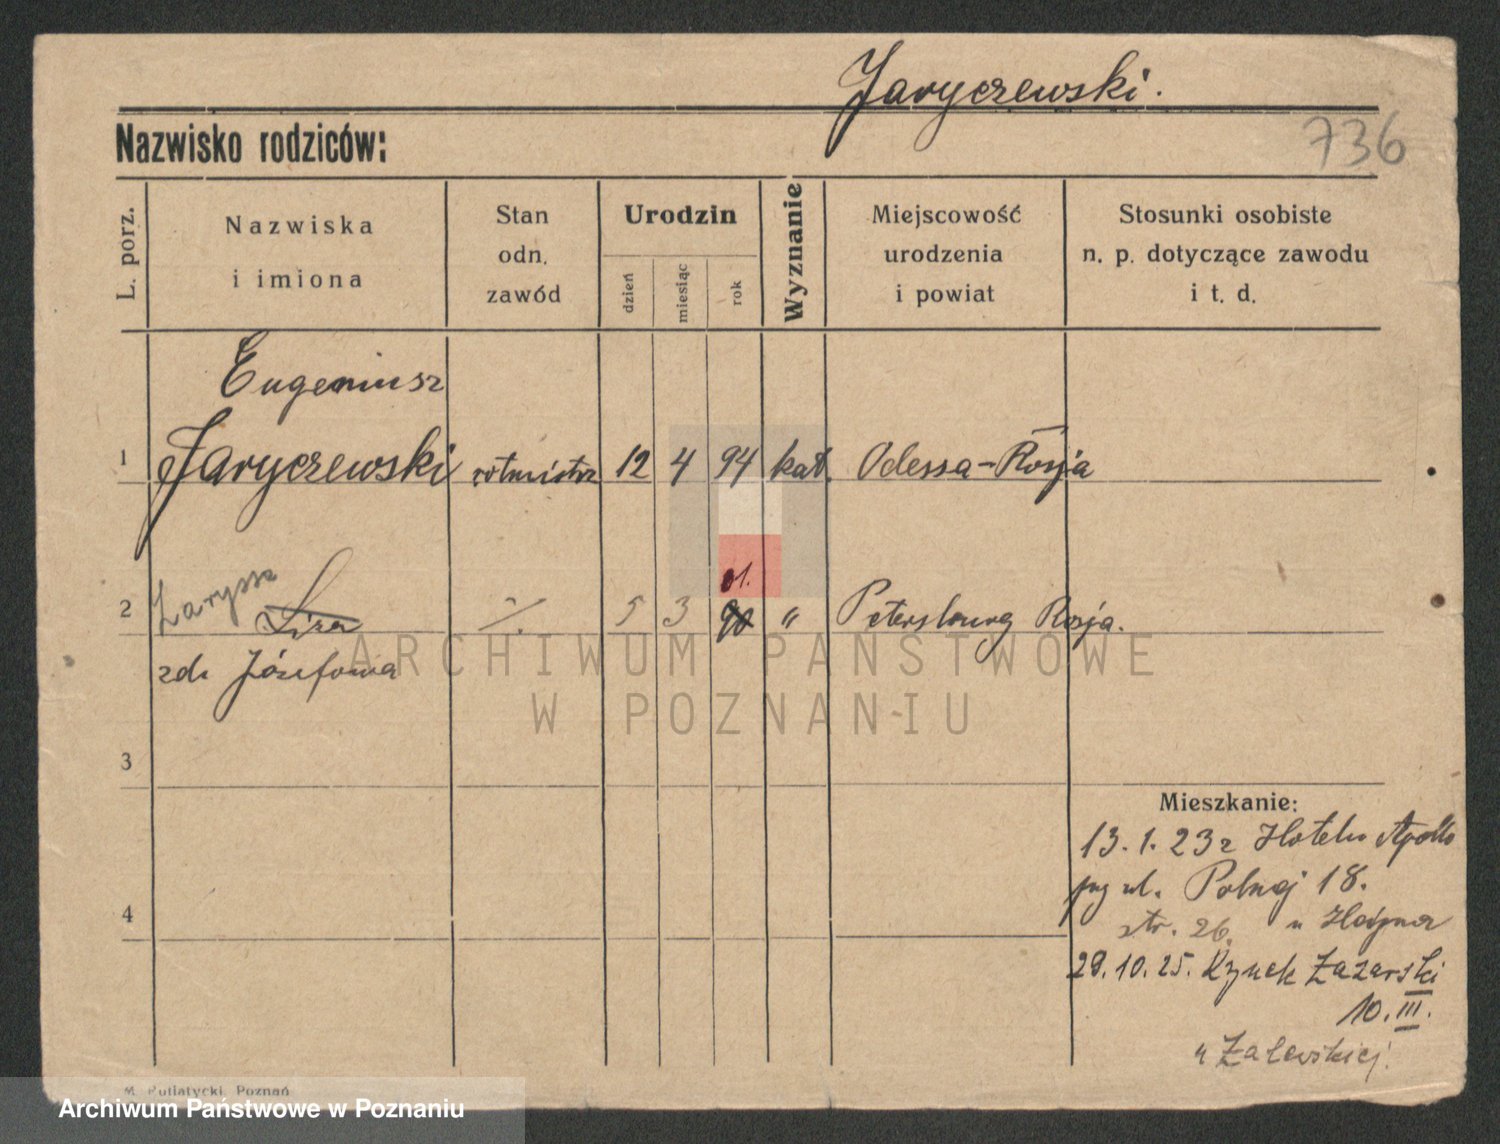 Jaryczewski.
Nazwisko rodziców:
736
L. porz.
Nazwiska
i imiona
Stan
odn.
zawód
Urodzin
dzień
miesiąc
rok
Wyznanie
Miejscowość
urodzenia
i powiat
Stosunki osobiste
n. p. dotyczące zawodu
i t. d.
Eugeniusz
1 Jaryczewski rotmistrz 12 4 94 kat. Odessa-Rosja
Laryssa
01.
2 Liza /. 5 3 90 " Petersburg Rosja.
zd. Józefowa
3
Mieszkanie:
13.1.23 z Hotelu Apollo
ul. Polnej 18.
4
str. 26. u
28.10.25. Rynek Łazarski
10. III.
u Zalewskiej.
M. Putiatycki, Poznań
ARCHIWUM PAŃSTWOWE
W POZNANIU
Archiwum Państwowe w Poznaniu